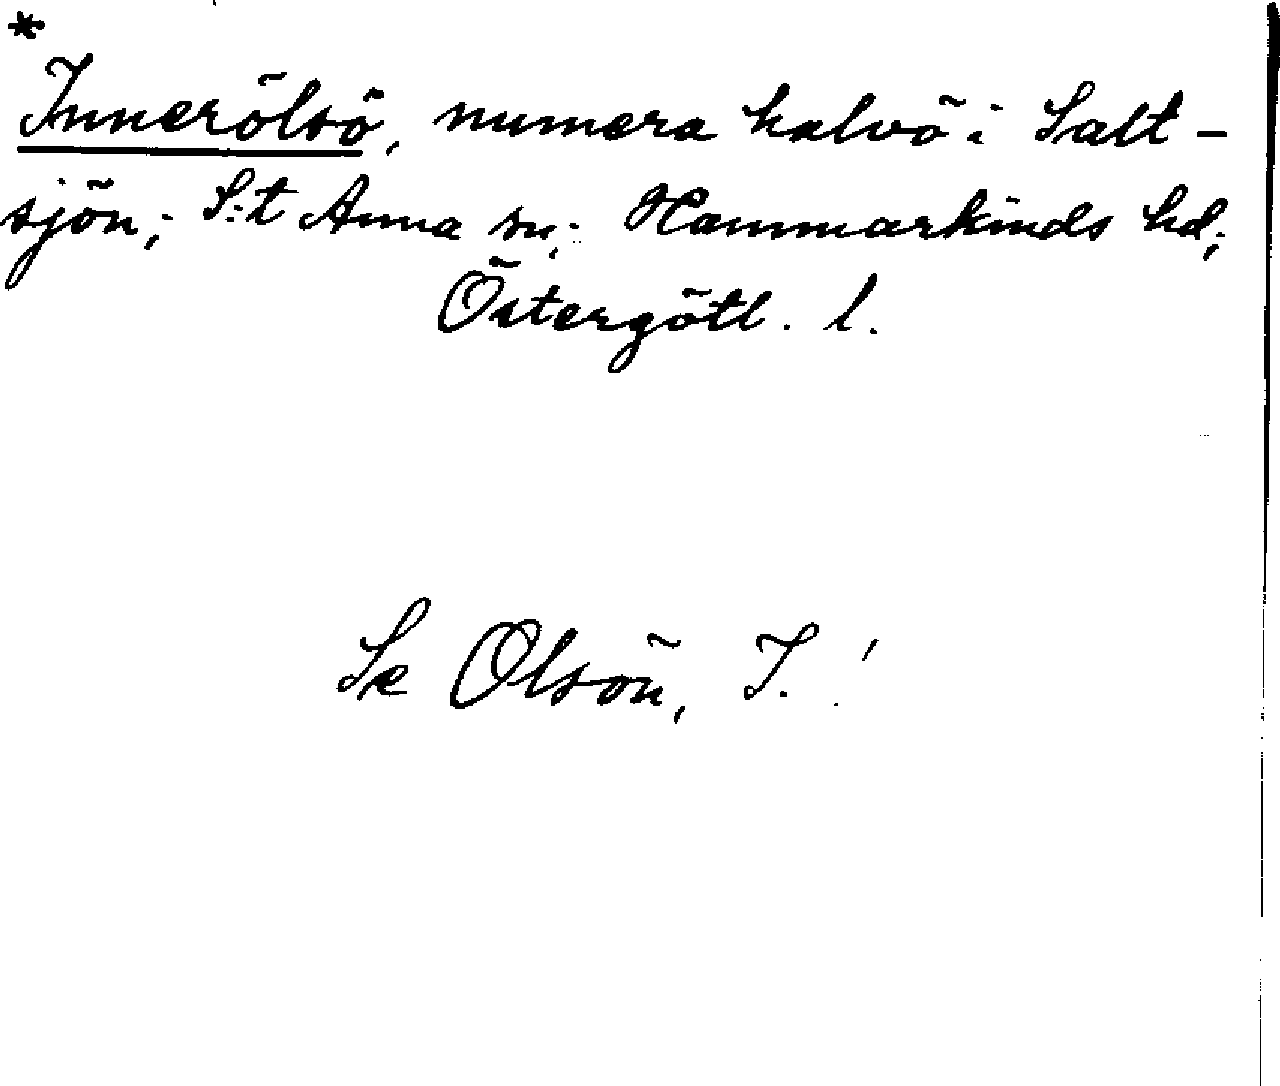 *
Innerölsö, numera halvö i Salt-
sjön; S:t Anna sn; Hammarkinds hd;
Östergötl. l.
Se Olsön, I. !